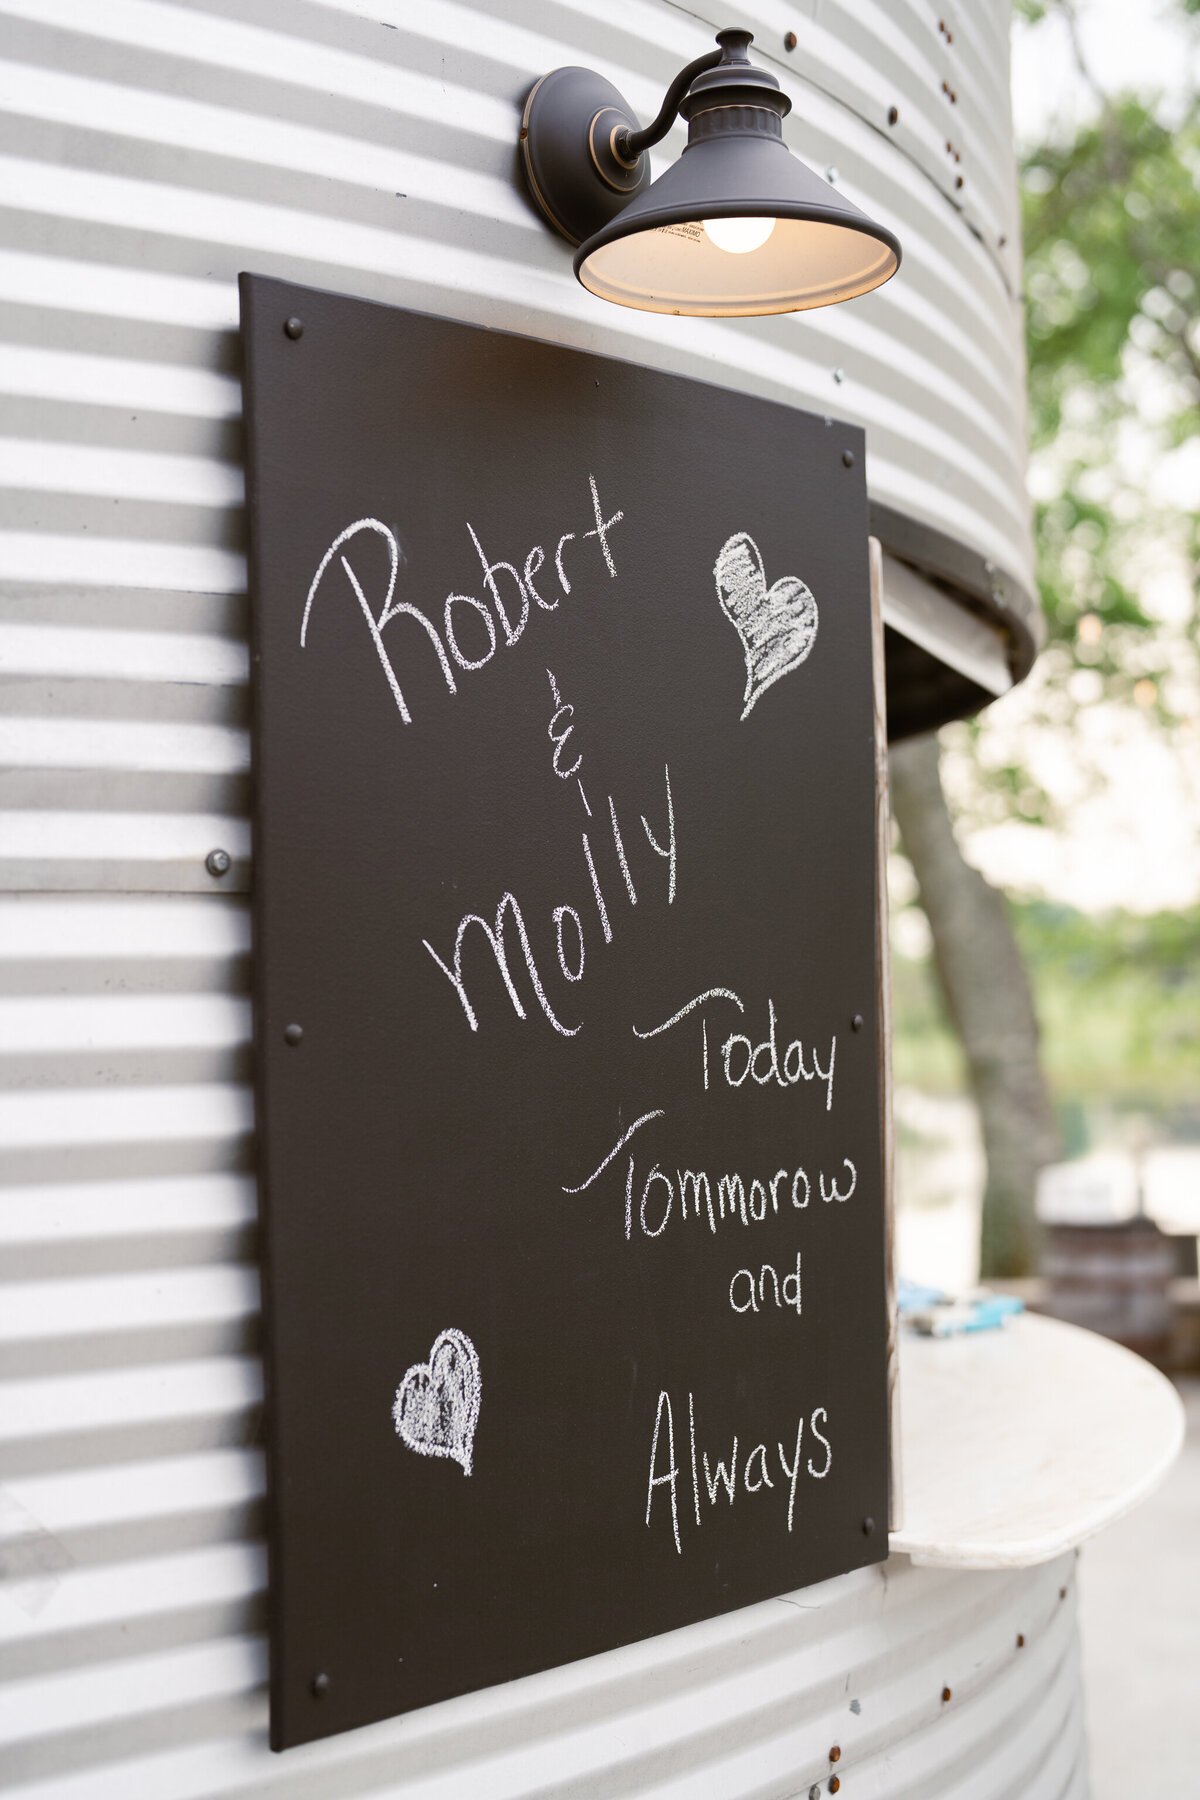 Robert
&
Molly
Today
Tommorow
and
Always